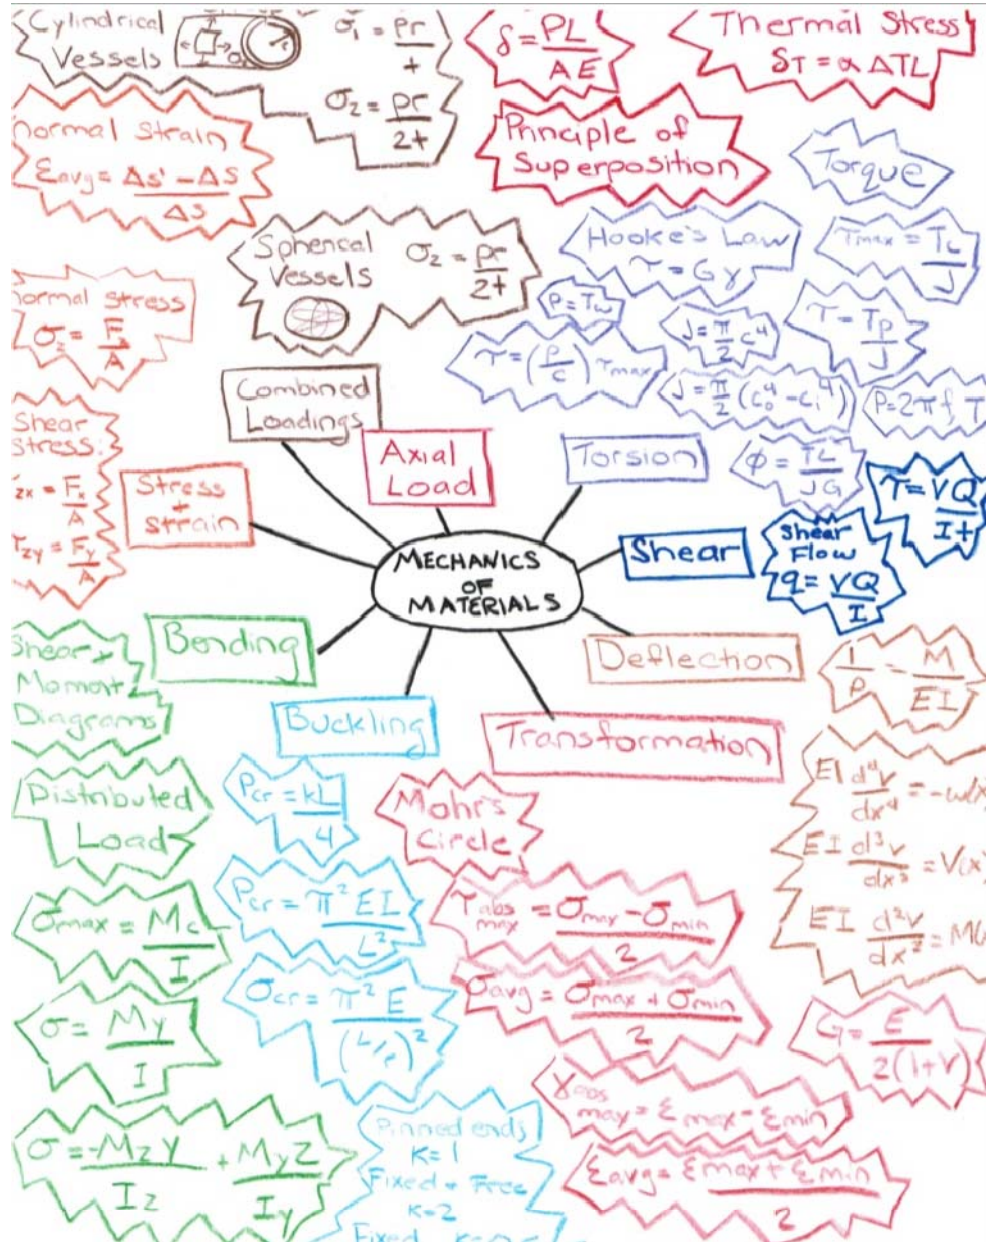 Cylindrical
Vessels
σ₁ = pr/t
σ₂ = pr/2t
δ = PL/AE
Thermal Stress
δT = α ΔTL
Normal Strain
εavg = Δs' - Δs/Δs
Principle of
Superposition
Torque
Spherical
Vessels
σ₂ = pr/2t
Hooke's Law
τ = Gγ
τmax = Tc/J
Normal Stress
σz = F/A
P = Tω
J = π/2 c⁴
τ = Tρ/J
τ = (ρ/c) τmax
J = π/2 (co⁴ - ci⁴)
P = 2πf T
Combined
Loadings
Axial
Load
Torsion
φ = TL/JG
τ = VQ/It
Shear
Stress:
zx = Fx/A
τzy = Fy/A
Stress
+
Strain
MECHANICS
OF
MATERIALS
Shear
Shear
Flow
q = VQ/I
Bending
Deflection
1/ρ = M/EI
Shear +
Moment
Diagrams
Buckling
Transformation
Distributed
Load
Pcr = kL/4
Mohr's
Circle
EI d⁴v/dx⁴ = -w(x
EI d³v/dx³ = V(x
EI d²v/dx² = M(
σmax = Mc/I
Pcr = π² EI/L²
τabs max = σmax - σmin/2
σ = My/I
σcr = π² E/(L/r)²
σavg = σmax + σmin/2
G = E/2(1+ν)
γabs max = εmax - εmin
σ = -Mz y/Iz + My z/Iy
Pinned ends
K=1
Fixed + Free
K=2
Fixed
εavg = εmax + εmin/2